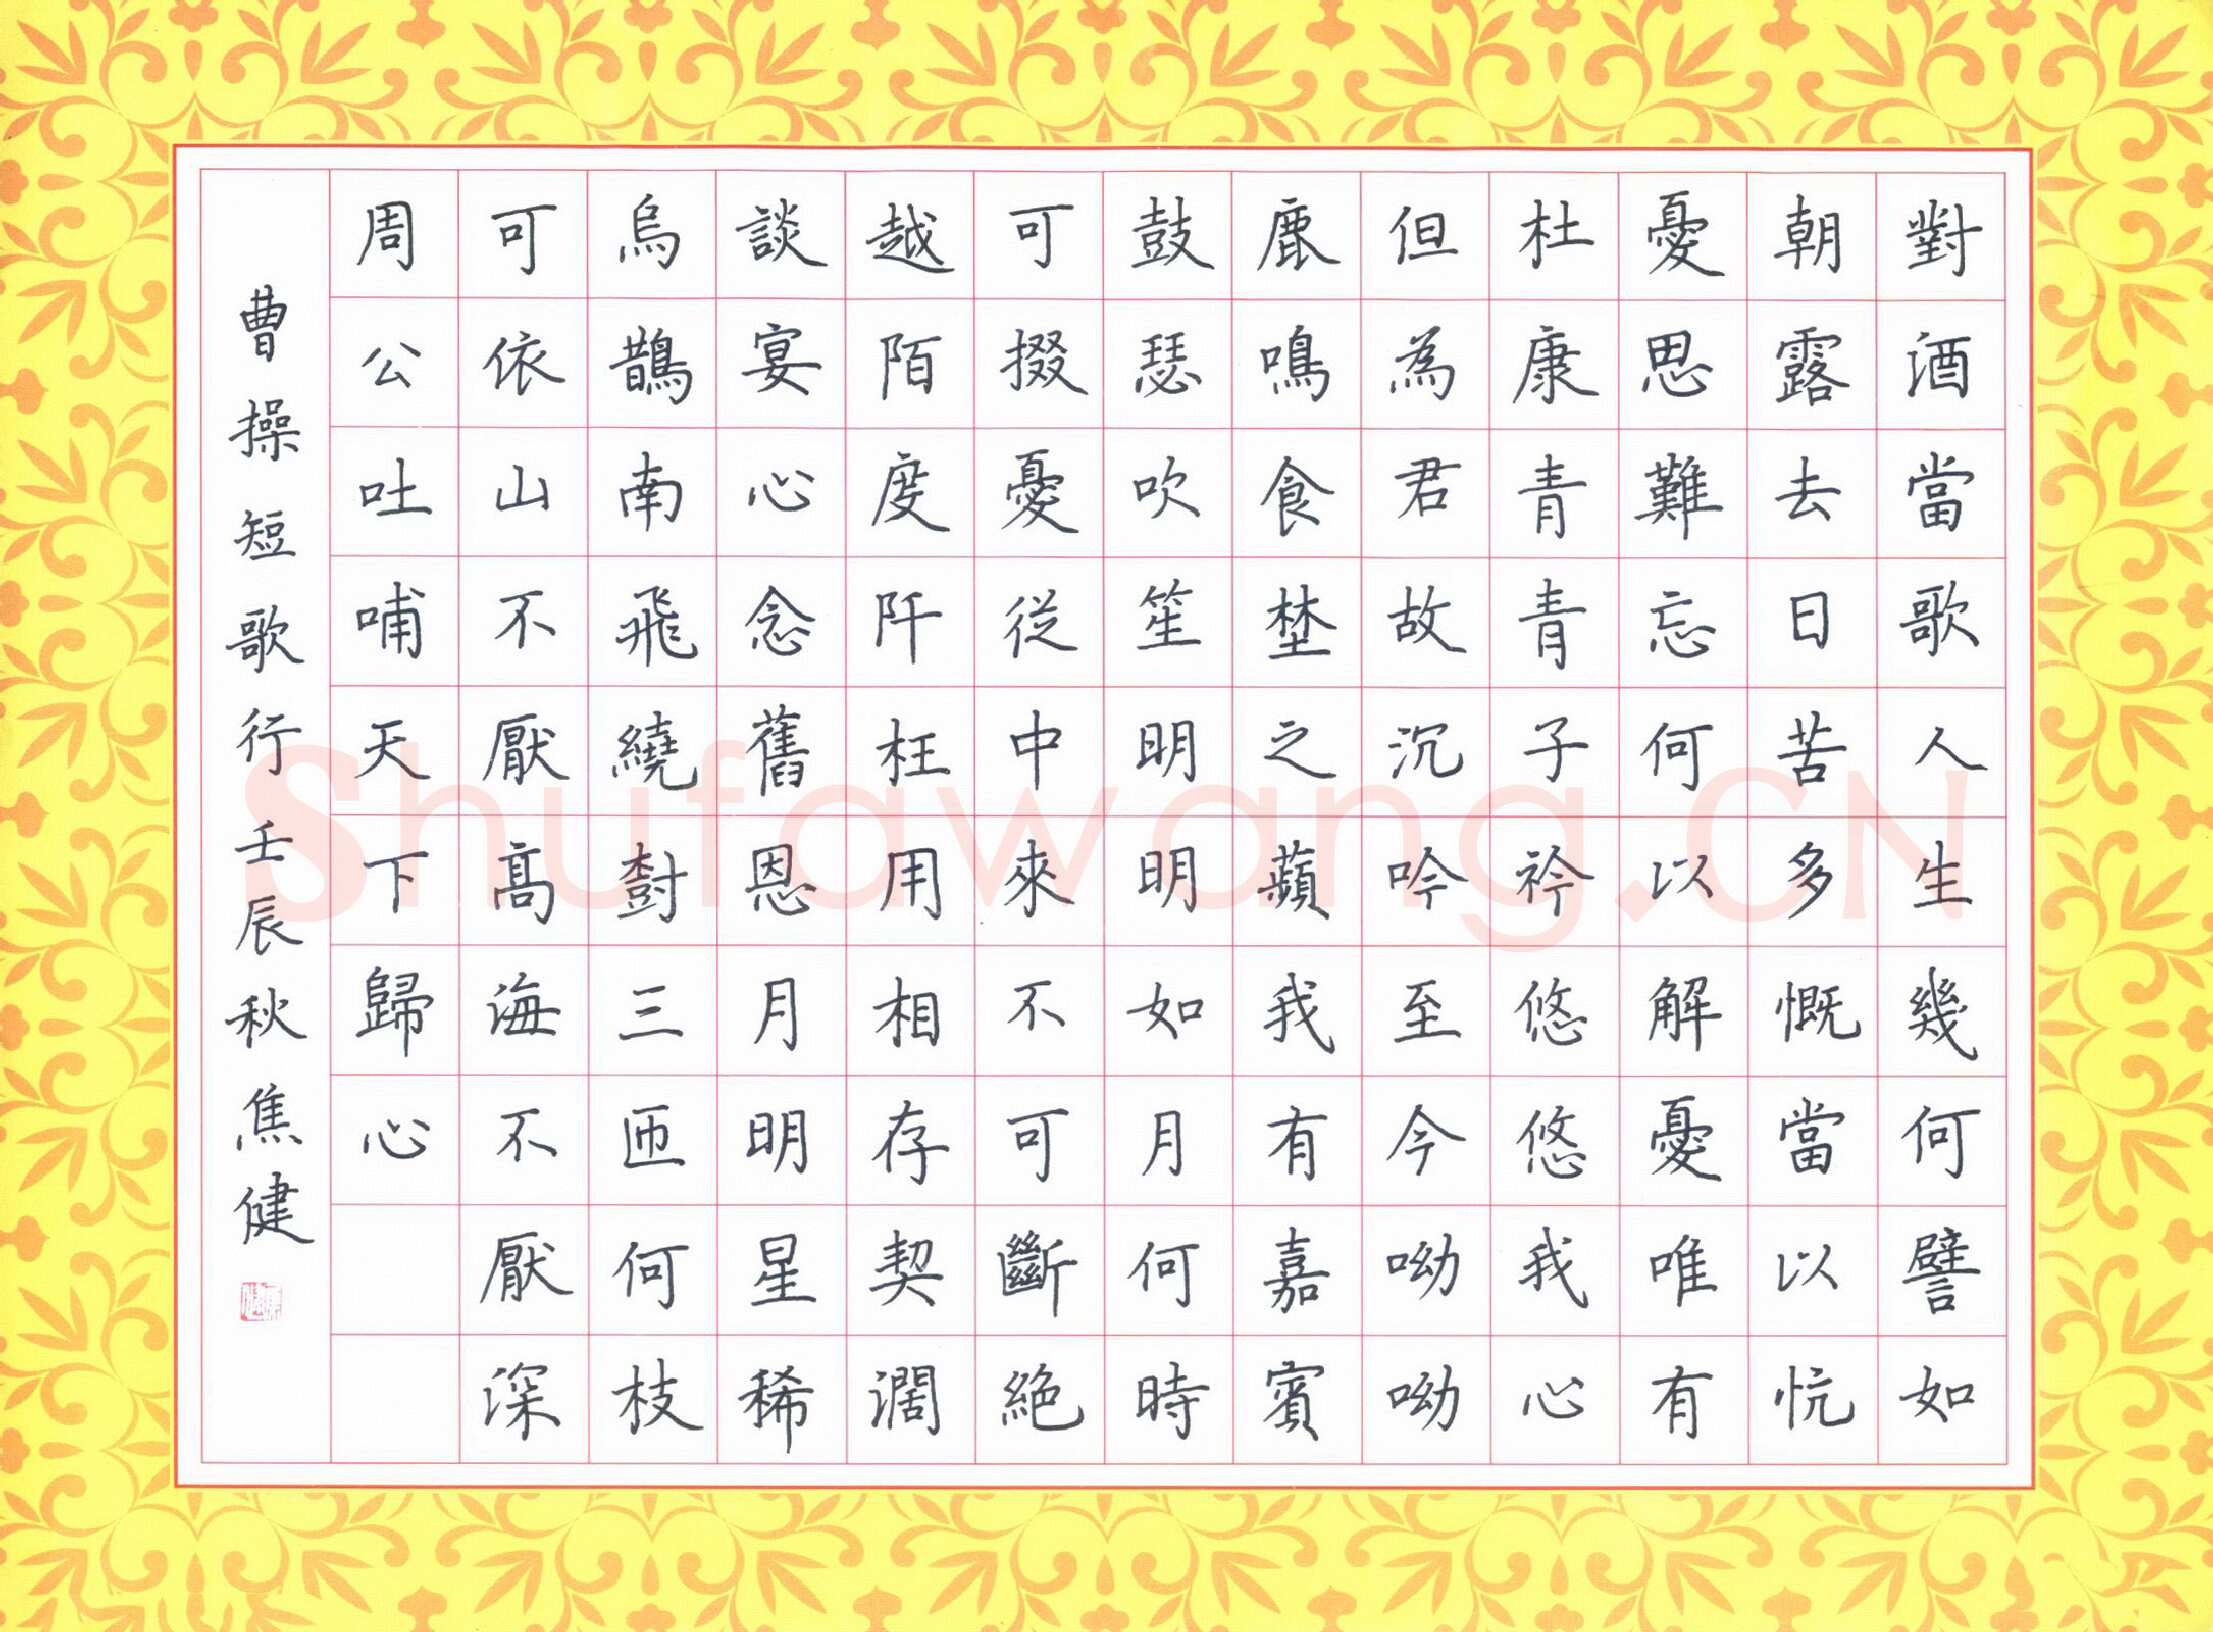 對酒當歌人生幾何譬如
朝露去日苦多慨當以忼
憂思難忘何以解憂唯有
杜康青青子衿悠悠我心
但為君故沉吟至今呦呦
鹿鳴食埜之蘋我有嘉賓
鼓瑟吹笙明明如月何時
可掇憂從中來不可斷絕
越陌度阡枉用相存契濶
談宴心念舊恩月明星稀
烏鵲南飛繞樹三匝何枝
可依山不厭髙海不厭深
周公吐哺天下歸心
曹操短歌行壬辰秋焦健
Shufawang.CN